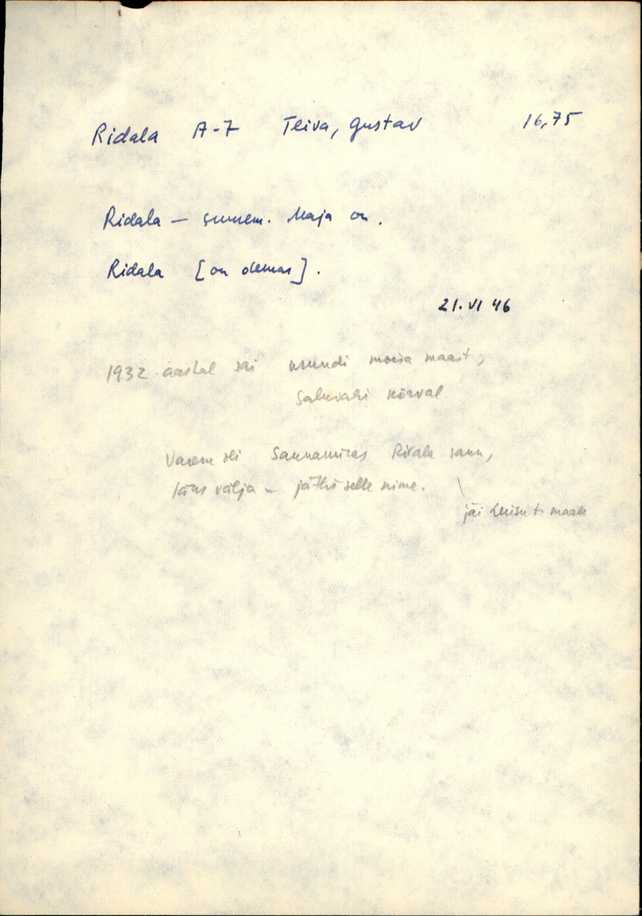 Ridala A-7 Teiva, Gustav 16,75
Ridala — suurem. Maja on.
Ridala [on olemas].
21. VI 46
1932 aastal sai krundi moisa maast,
kõrval
Varem oli Saunamäes Ridala saun,
läks välja – jätkis selle nime.
jäi t. maale